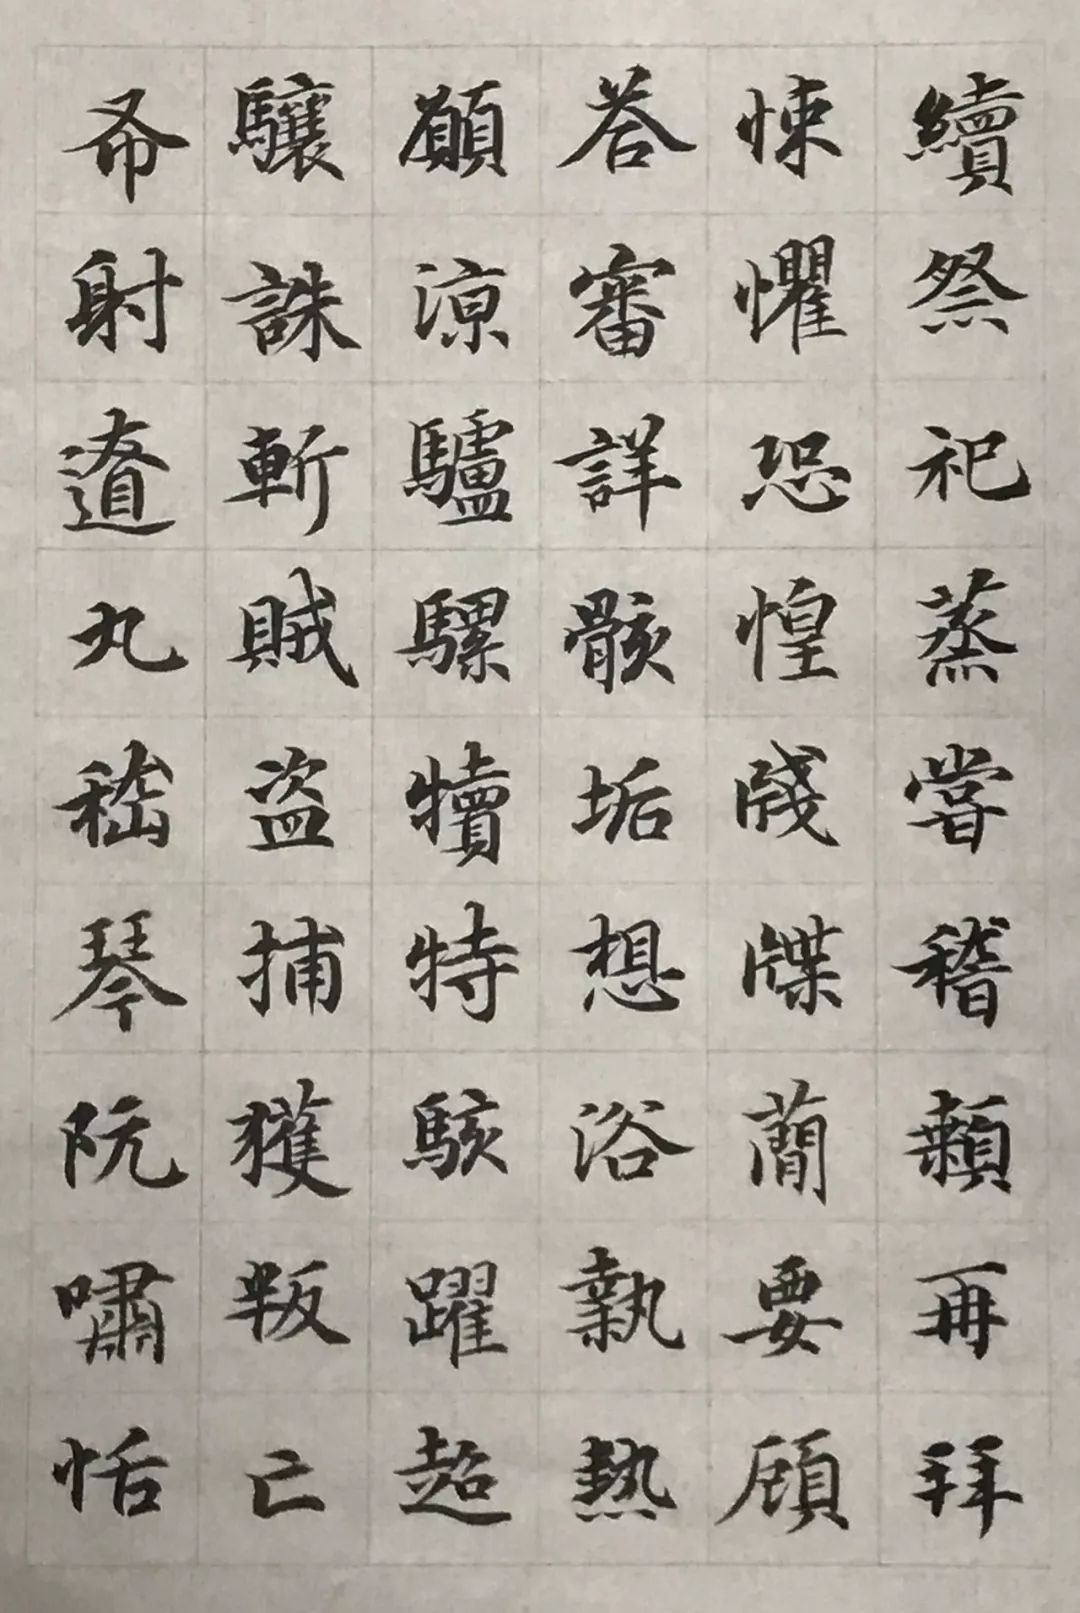 續祭祀蒸嘗稽顙再拜
悚懼恐惶牋牒蕳要顧
荅審詳骸垢想浴執熱
願涼驢騾犢特駭躍超
驤誅斬賊盜捕獲叛亡
布射遼丸嵇琴阮嘯恬